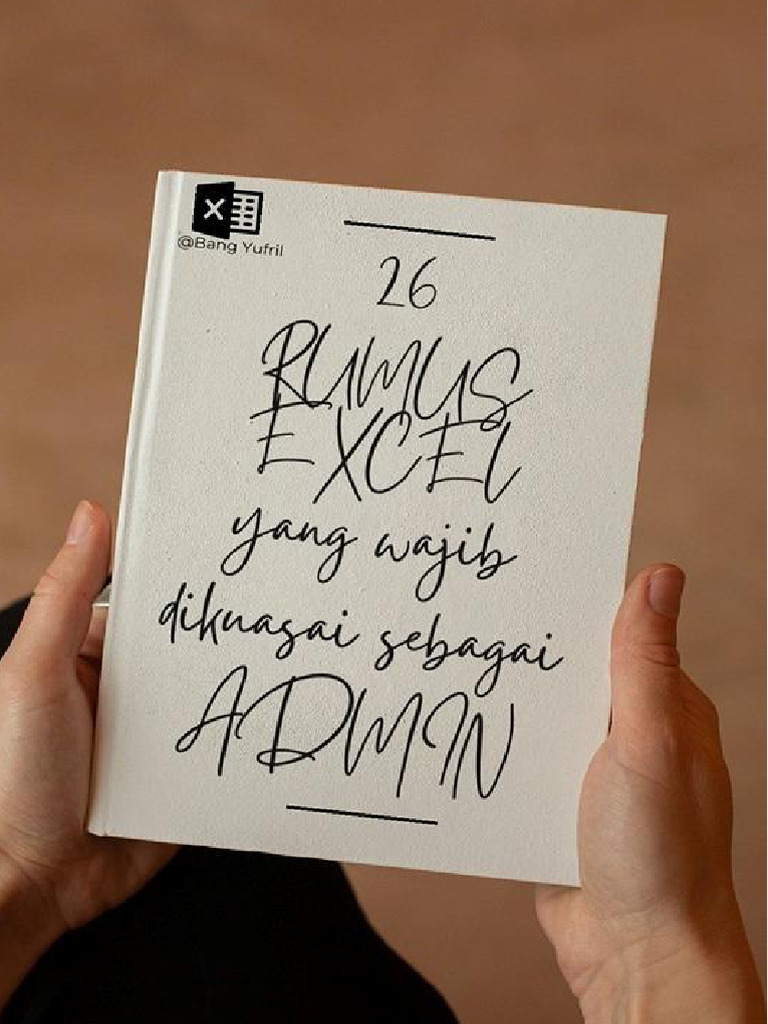 X
@Bang Yufril
26
RUMUS
EXCEL
yang wajib
dikuasai sebagai
ADMIN